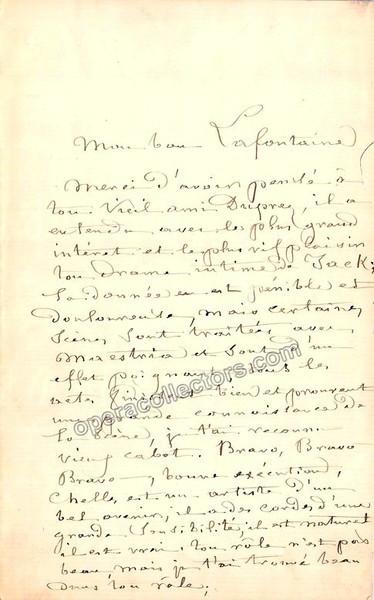 Mon bon Lafontaine
Merci d'avoir pensé à
ton vieil ami Duprez, il a
entendu avec le plus grand
intéret et le plus vif plaisir
ton drame intime de Jack;
la donnée en est pénible et
douloureuse, mais certaines
scènes sont traitées avec
maestria et sont d'un
effet poignant, tous les
actes finissent bien et prouvent
une grande connaissance de
la scène, je t'ai reconnu
vieux cabot. Bravo, Bravo
Bravo, bonne exécution,
Chelles est un artiste d'un
bel avenir, il a des cordes d'une
grande sensibilité, il est naturel
il est vrai; ton rôle n'est pas
beau, mais je t'ai trouvé beau
dans ton rôle;
operacollectors.com